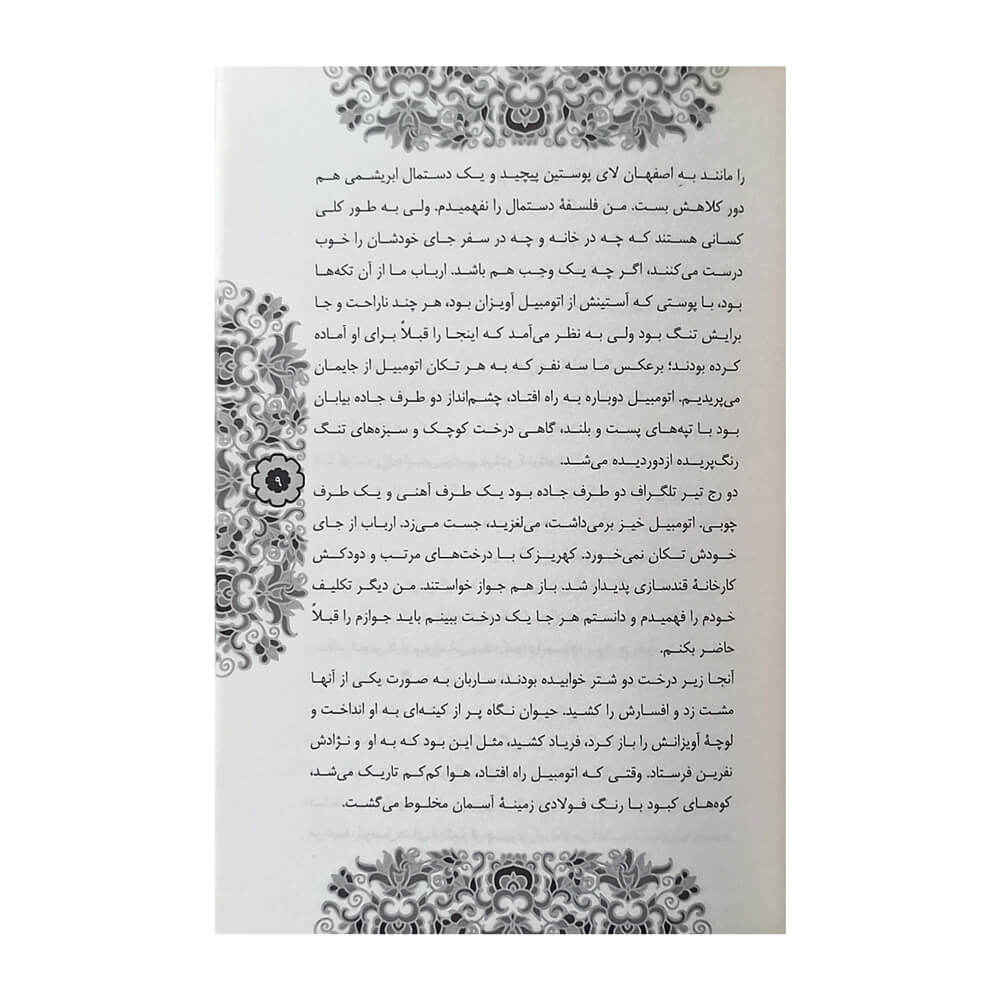 را مانند بهِ اصفهان لای پوستین پیچید و یک دستمال ابریشمی هم
دور کلاهش بست. من فلسفهٔ دستمال را نفهمیدم. ولی به طور کلی
کسانی هستند که چه در خانه و چه در سفر جای خودشان را خوب
درست می‌کنند، اگر چه یک وجب هم باشد. ارباب ما از آن تکه‌ها
بود، با پوستی که آستینش از اتومبیل آویزان بود، هر چند ناراحت و جا
برایش تنگ بود ولی به نظر می‌آمد که اینجا را قبلاً برای او آماده
کرده بودند؛ برعکس ما سه نفر که به هر تکان اتومبیل از جایمان
می‌پریدیم. اتومبیل دوباره به راه افتاد، چشم‌انداز دو طرف جاده بیابان
بود با تپه‌های پست و بلند، گاهی درخت کوچک و سبزه‌های تنگ
رنگ‌پریده ازدوردیده می‌شد.
دو رج تیر تلگراف دو طرف جاده بود یک طرف آهنی و یک طرف
چوبی. اتومبیل خیز برمی‌داشت، می‌لغزید، جست می‌زد. ارباب از جای
خودش تکان نمی‌خورد. کهریزک با درخت‌های مرتب و دودکش
کارخانهٔ قندسازی پدیدار شد. باز هم جواز خواستند. من دیگر تکلیف
خودم را فهمیدم و دانستم هر جا یک درخت ببینم باید جوازم را قبلاً
حاضر بکنم.
آنجا زیر درخت دو شتر خوابیده بودند، ساربان به صورت یکی از آنها
مشت زد و افسارش را کشید. حیوان نگاه پر از کینه‌ای به او انداخت و
لوچهٔ آویزانش را باز کرد، فریاد کشید، مثل این بود که به او و نژادش
نفرین فرستاد. وقتی که اتومبیل راه افتاد، هوا کم‌کم تاریک می‌شد،
کوه‌های کبود با رنگ فولادی زمینهٔ آسمان مخلوط می‌گشت.
۹